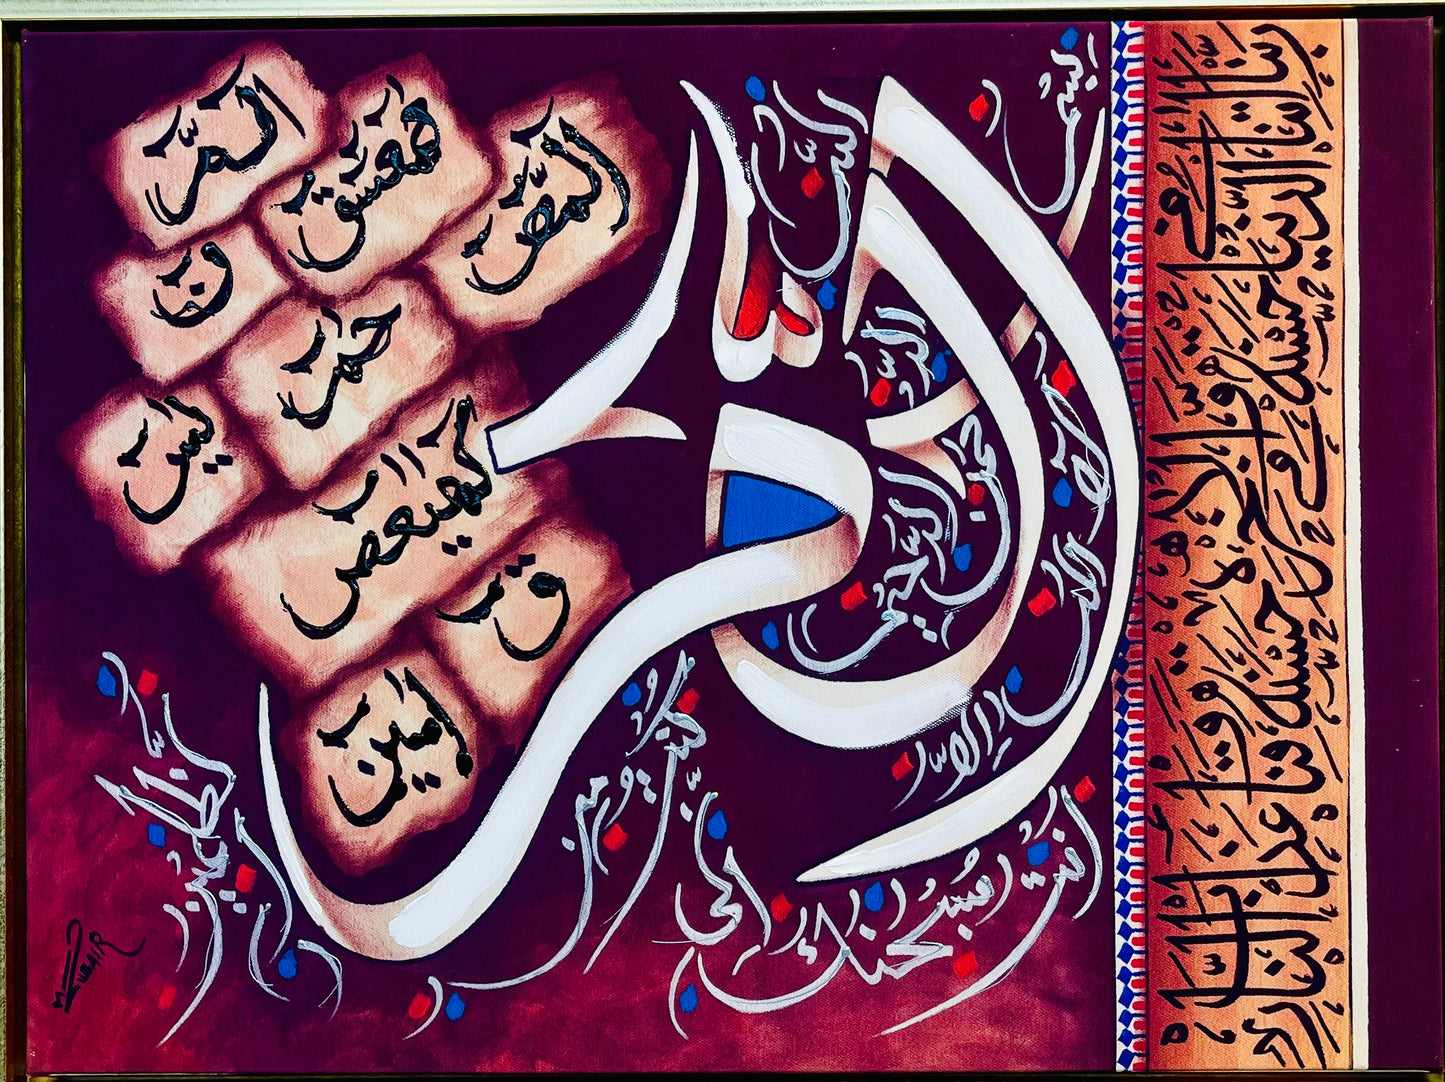 المر
حمعسق
المص
ن
حم
يس
كهيعص
ق
امين
بسم الله الرحمن الرحيم
لا اله الا انت سبحنك انى كنت من الظلمين
ربنا اتنا فى الدنيا حسنة و فى الاخرة حسنة وقنا عذاب النار
ZUBAIR